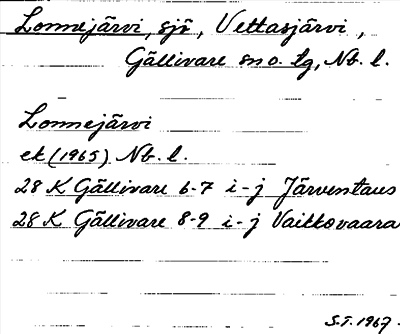 Lonnejärvi, sjö, Vettasjärvi,
Gällivare sn o. lg, Nb. l.
Lonnejärvi
ek (1965) Nb. l.
28 K Gällivare 6-7 i-j Järvenstaus
28 K Gällivare 8-9 i-j Vaikkovaara
S.T. 1967.